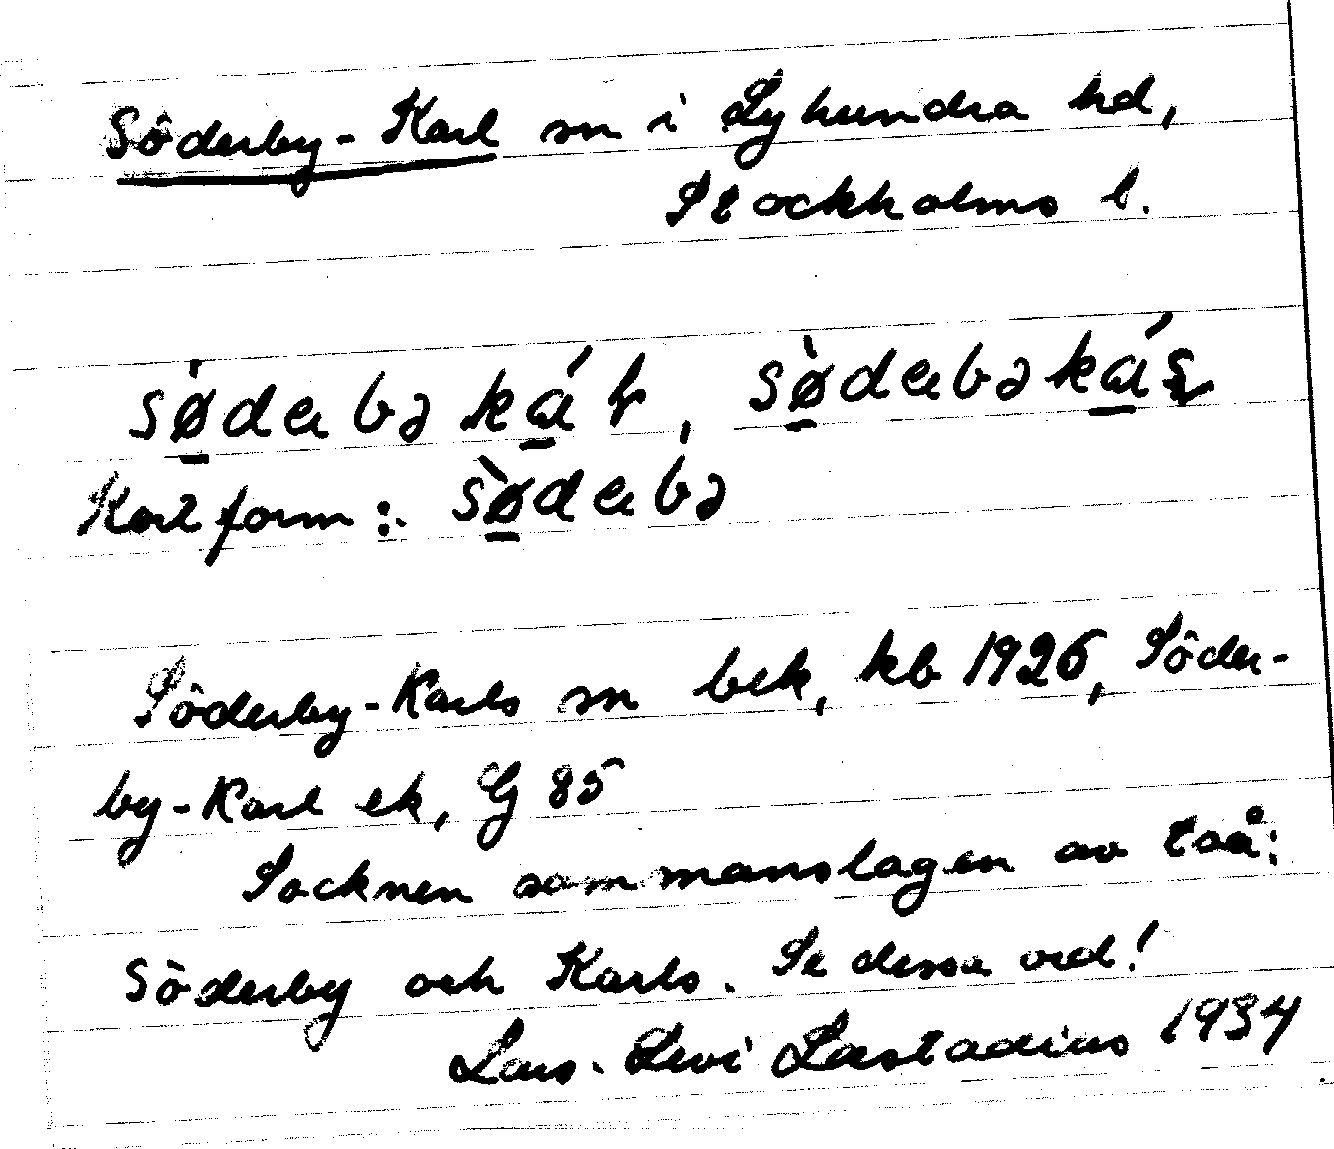 Söderby-Karl sn i Lyhundra hd,
Stockholms l.
Kortform:
Söderby-Karls sn bek, kb 1926, Söder-
by-Karl ek, G 85
Socknen sammanslagen av två:
Söderby och Karls. Se dessa ord!
Lars-Levi Læstadius 1934